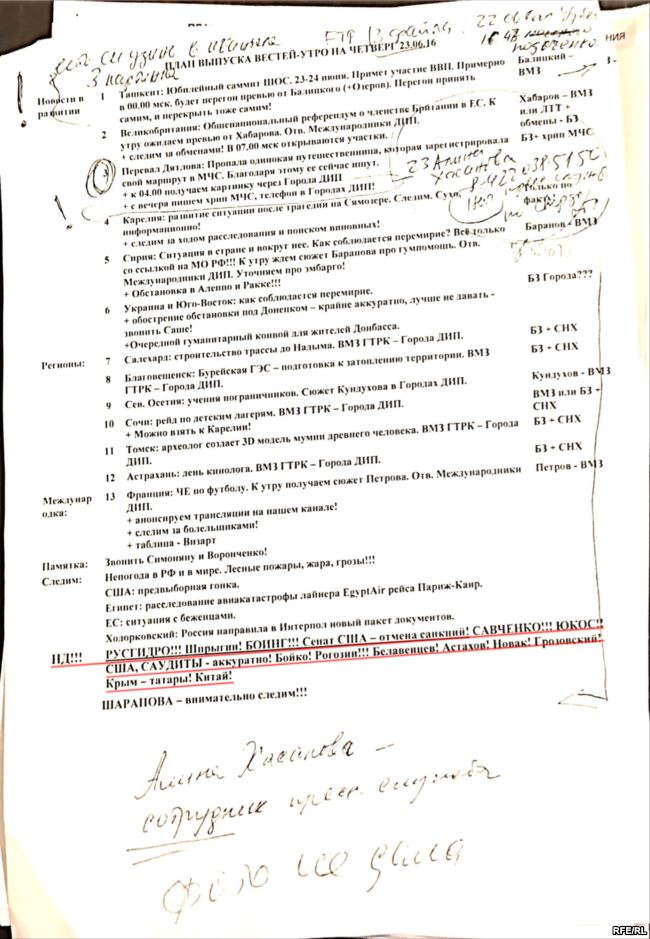 FTP
ПЛАН ВЫПУСКА ВЕСТЕЙ-УТРО НА ЧЕТВЕРГ 23.06.16
Новости в развитии
1 Ташкент: Юбилейный саммит ШОС. 23-24 июня. Примет участие ВВП. Примерно
в 00.00 мск. будет перегон превью от Балицкого (+Озеров). Перегон принять
самим, и перекрыть тоже самим!
Балицкий – ВМЗ
2 Великобритания: Общенациональный референдум о членстве Британии в ЕС. К
утру ожидаем превью от Хабарова. Отв. Международники ДИП.
+ следим за обменами! В 07.00 мск открываются участки.
Хабаров – ВМЗ
или ЛТТ +
обмены - БЗ
3 Перевал Дятлова: Пропала одинокая путешественница, которая зарегистрировала
свой маршрут в МЧС. Благодаря этому ее сейчас ищут.
+ к 04.00 получаем картинку через Города ДИП
+ с вечера пишем хрип МЧС, телефон в Городах ДИП!
БЗ+ хрип МЧС.
23 Алина
Хасанова
4 Карелия: развитие ситуации после трагедии на Сямозере. Следим. Сухо,
информационно!
+ следим за ходом расследования и поиском виновных!
Только по
5 Сирия: Ситуация в стране и вокруг нее. Как соблюдается перемирие? Всё только
со ссылкой на МО РФ!!! К утру ждем сюжет Баранова про гумпомощь. Отв.
Международники ДИП. Уточняем про эмбарго!
+ Обстановка в Алеппо и Ракке!!!
Баранов - ВМЗ
6 Украина и Юго-Восток: как соблюдается перемирие.
+ обострение обстановки под Донецком – крайне аккуратно, лучше не давать -
звонить Саше!
+Очередной гуманитарный конвой для жителей Донбасса.
БЗ Города???
Регионы:
7 Салехард: строительство трассы до Надыма. ВМЗ ГТРК – Города ДИП.
БЗ + СНХ
8 Благовещенск: Бурейская ГЭС – подготовка к затоплению территории. ВМЗ
ГТРК – Города ДИП.
БЗ + СНХ
9 Сев. Осетия: учения пограничников. Сюжет Кундухова в Городах ДИП.
Кундухов - ВМЗ
10 Сочи: рейд по детским лагерям. ВМЗ ГТРК – Города ДИП.
+ Можно взять к Карелии!
ВМЗ или БЗ +
СНХ
11 Томск: археолог создает 3D модель мумии древнего человека. ВМЗ ГТРК – Города
ДИП.
БЗ + СНХ
12 Астрахань: день кинолога. ВМЗ ГТРК – Города ДИП.
БЗ + СНХ
Международка:
13 Франция: ЧЕ по футболу. К утру получаем сюжет Петрова. Отв. Международники
ДИП.
+ анонсируем трансляции на нашем канале!
+ следим за болельщиками!
+ таблица - Визарт
Петров - ВМЗ
Памятка:
Звонить Симоняну и Воронченко!
Следим:
Непогода в РФ и в мире. Лесные пожары, жара, грозы!!!
США: предвыборная гонка.
Египет: расследование авиакатастрофы лайнера EgyptAir рейса Париж-Каир.
ЕС: ситуация с беженцами.
Ходорковский: Россия направила в Интерпол новый пакет документов.
НД!!!
РУСГИДРО!!! Шпрыгин! БОИНГ!!! Сенат США – отмена санкций! САВЧЕНКО!!! ЮКОС!!
США, САУДИТЫ - аккуратно! Бойко! Рогозин!!! Белавенцев! Астахов! Новак! Грозовский!
Крым – татары! Китай!
ШАРАПОВА – внимательно следим!!!
Алина Хасанова –
сотрудник пресс службы
фото не дала
RFE/RL